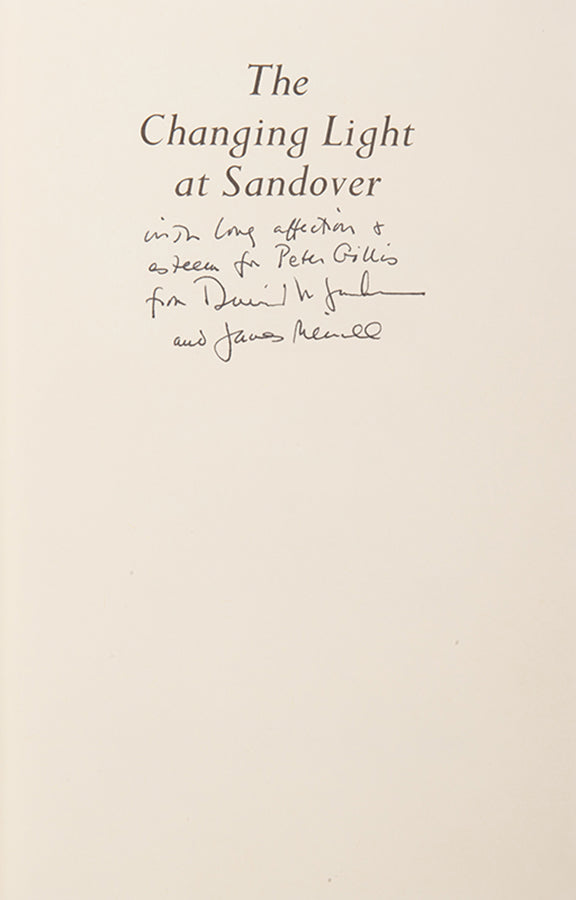 The
Changing Light
at Sandover
with long affection &
esteem for Peter Gillis
from David
and James Merrill